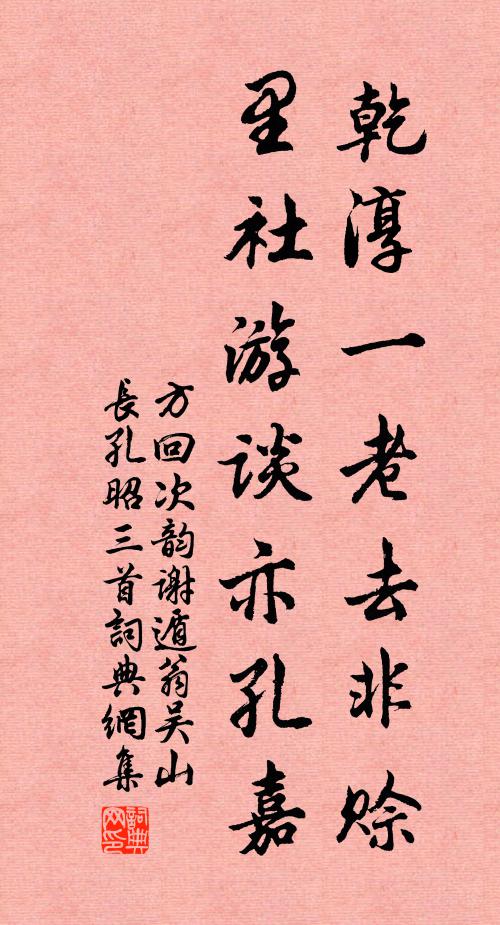 乾淳一老去非賒
里社游谈亦孔嘉
方回次韵谢遁翁吴山
長孔昭三首詞典網集
詞典网印